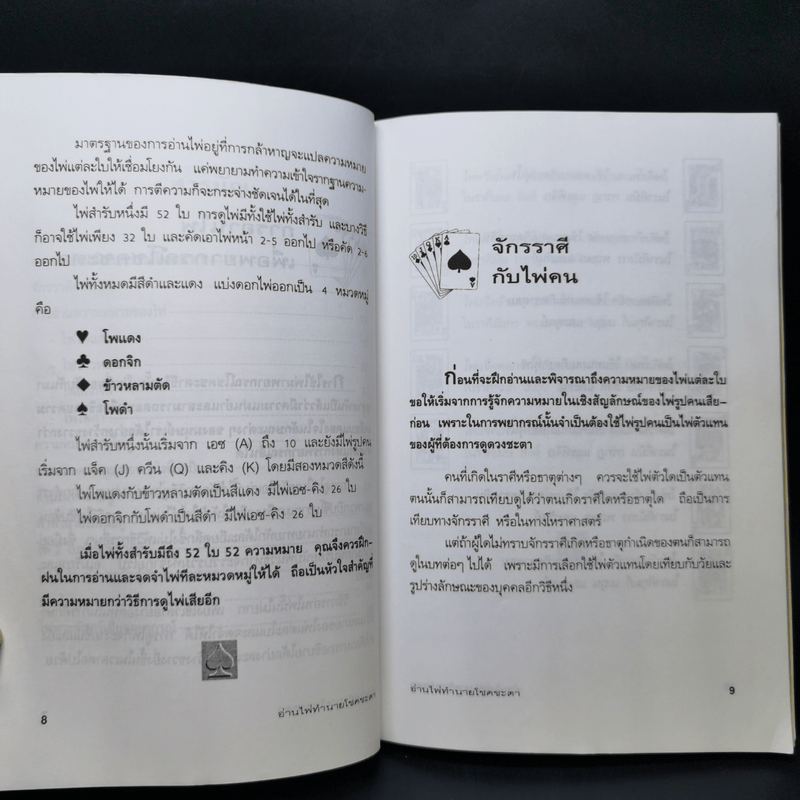 มาตรฐานของการอ่านไพ่อยู่ที่การกล้าหาญจะแปลความหมาย
ของไพ่แต่ละใบให้เชื่อมโยงกัน แค่พยายามทำความเข้าใจรากฐานความ-
หมายของไพ่ให้ได้ การตีความก็จะกระจ่างชัดเจนได้ในที่สุด
ไพ่สำรับหนึ่งมี 52 ใบ การดูไพ่มีทั้งใช้ไพ่ทั้งสำรับ และบางวิธี
ก็อาจใช้ไพ่เพียง 32 ใบ และคัดเอาไพ่หน้า 2-5 ออกไป หรือคัด 2-6
ออกไป
ไพ่ทั้งหมดมีสีดำและแดง แบ่งดอกไพ่ออกเป็น 4 หมวดหมู่
คือ
♥ โพแดง
♣ ดอกจิก
♦ ข้าวหลามตัด
♠ โพดำ
ไพ่สำรับหนึ่งนั้นเริ่มจาก เอซ (A) ถึง 10 และยังมีไพ่รูปคน
เริ่มจาก แจ็ค (J) ควีน (Q) และคิง (K) โดยมีสองหมวดสีดังนี้
ไพ่โพแดงกับข้าวหลามตัดเป็นสีแดง มีไพ่เอซ-คิง 26 ใบ
ไพ่ดอกจิกกับโพดำเป็นสีดำ มีไพ่เอซ-คิง 26 ใบ
เมื่อไพ่ทั้งสำรับมีถึง 52 ใบ 52 ความหมาย คุณจึงควรฝึก-
ฝนในการอ่านและจดจำไพ่ทีละหมวดหมู่ให้ได้ ถือเป็นหัวใจสำคัญที่
มีความหมายกว่าวิธีการดูไพ่เสียอีก
8
อ่านไพ่ทำนายโชคชะตา
จักรราศี
กับไพ่คน
ก่อนที่จะฝึกอ่านและพิจารณาถึงความหมายของไพ่แต่ละใบ
ขอให้เริ่มจากการรู้จักความหมายในเชิงสัญลักษณ์ของไพ่รูปคนเสีย-
ก่อน เพราะในการพยากรณ์นั้นจำเป็นต้องใช้ไพ่รูปคนเป็นไพ่ตัวแทน
ของผู้ที่ต้องการดูดวงชะตา
คนที่เกิดในราศีหรือธาตุต่างๆ ควรจะใช้ไพ่ตัวใดเป็นตัวแทน
ตนนั้นก็สามารถเทียบดูได้ว่าตนเกิดราศีใดหรือธาตุใด ถือเป็นการ
เทียบทางจักรราศี หรือในทางโหราศาสตร์
แต่ถ้าผู้ใดไม่ทราบจักรราศีเกิดหรือธาตุกำเนิดของตนก็สามารถ
ดูในบทต่อๆ ไปได้ เพราะมีการเลือกใช้ไพ่ตัวแทนโดยเทียบกับวัยและ
รูปร่างลักษณะของบุคคลอีกวิธีหนึ่ง
อ่านไพ่ทำนายโชคชะตา
9